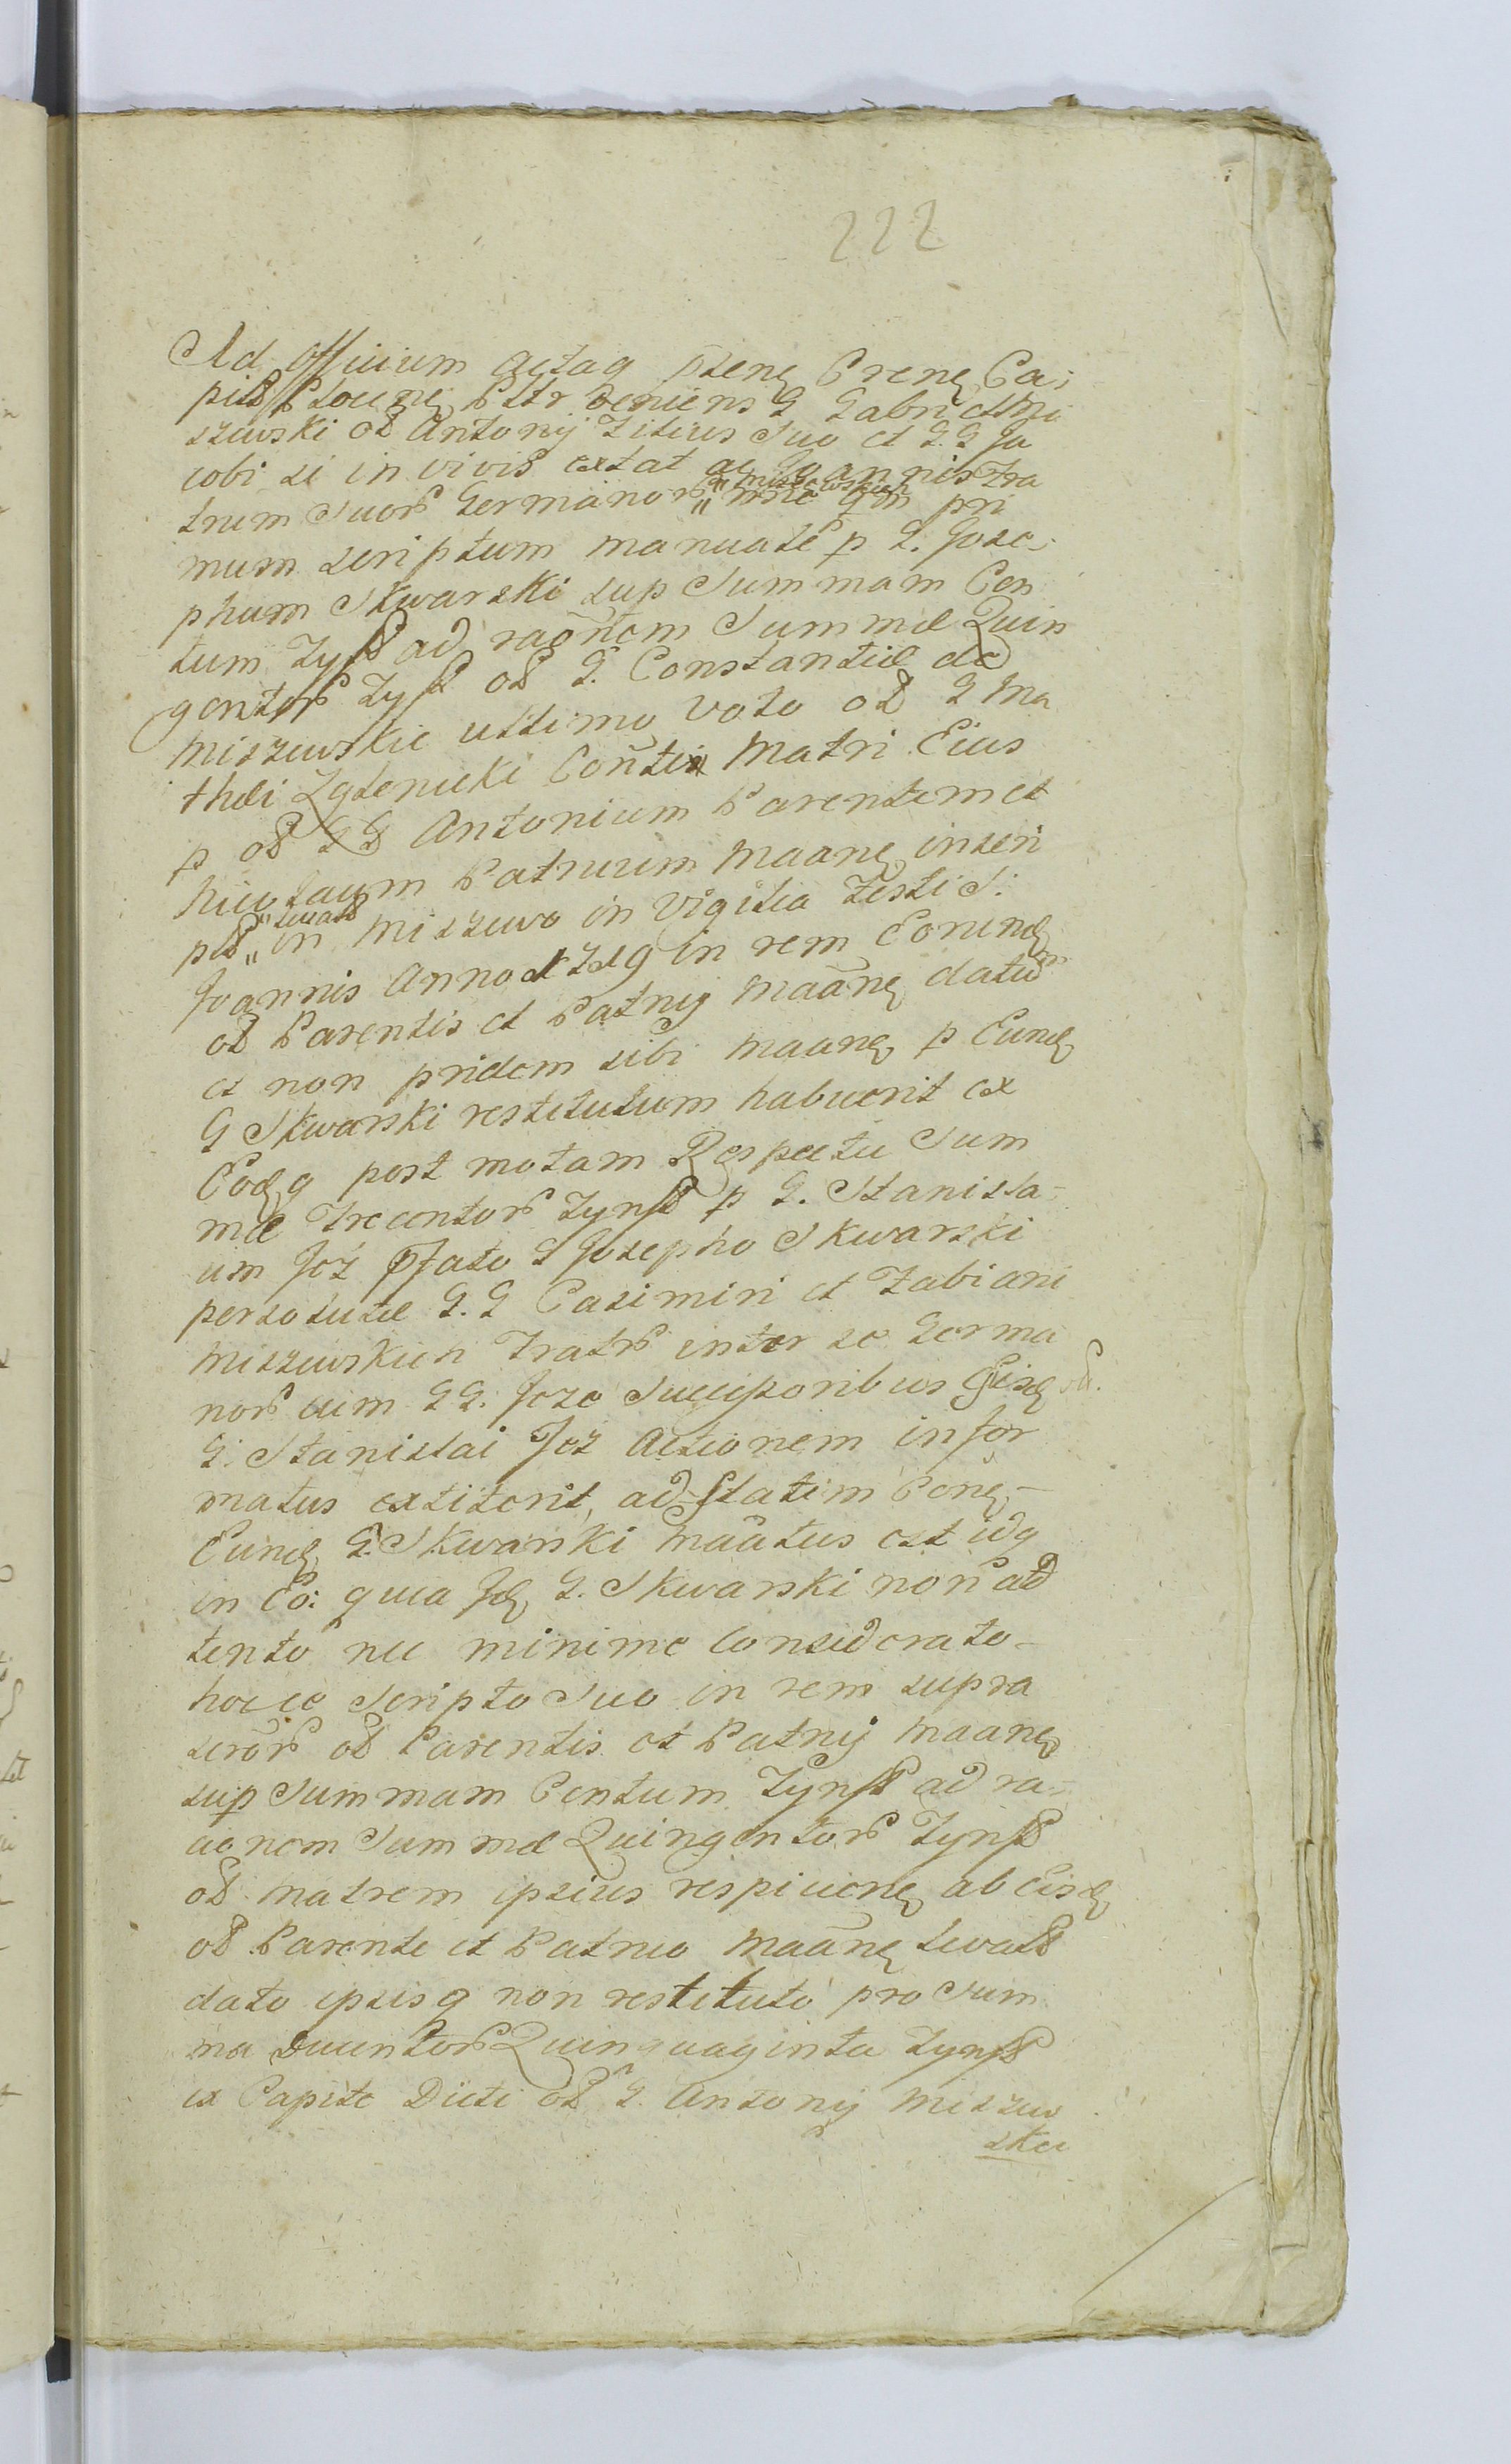 222
Ad Officium Actaq pseng Creng Ca:
pits Ploceng Pltr Veniens G Gabriel Mi
szewski ol Antonij Filius Suo et G. G Ja
cobi si in vivis extat ac Joannis Fra
trum Suor Germanor „Miszewskich nne qm pri
mum scriptum manuale p G. Jose:
phum Skwarski sup Summam Cen
tum Tyf ad raōnem Summæ Quin
gentor Tyf ol G. Constantiæ de
Miszewskie ultimo Voto ol G Ma
thei Zglenicki Conti Matri Eius
p ol GG Antonium Parentem et
Nicolaum Patruum Maang inscri
pt „levats in Miszewo in Vigilia Festi S:
Joannis Anno 1729 in rem Eorundem
ol Parentis et Patruj Maāng datū
et non pridem sibi Maang p Eund
G Skwarski restitutum habuerit ex
Eodq post motam Respectu Sum
mæ Trecentor Tynf p G. Stanisla-
um Joz Pfato G Josepho Skwarski
persolutæ G. G Casimiri et Fabiani
Miszewskich Fratr inter se Germa
nor cum GG. Joze Succesoribus Eisd
G. Stanislai Joz Actionem infor
matus extiterit, ad Statim Cong-
Eund G. Skwarski Maātus est idq
in Eo: quia Id G. Skwarski non ad
tento nec minime Considerato-
hocce Scripto Suo in rem supra
scror ol Parentis et Patruj Maang
sup Summam Centum Tynf ad ra-
cionem Summæ Quingentor Tynf
ol Matrem ipsius respiciong ab Eisd
ol Parente et Patruo Maāng levats
dato ipsisq non restituto pro Sum
ma Ducentor Quinquaginta Tynf
ex Capite Dicti ol G. Antonij Miszew
skei